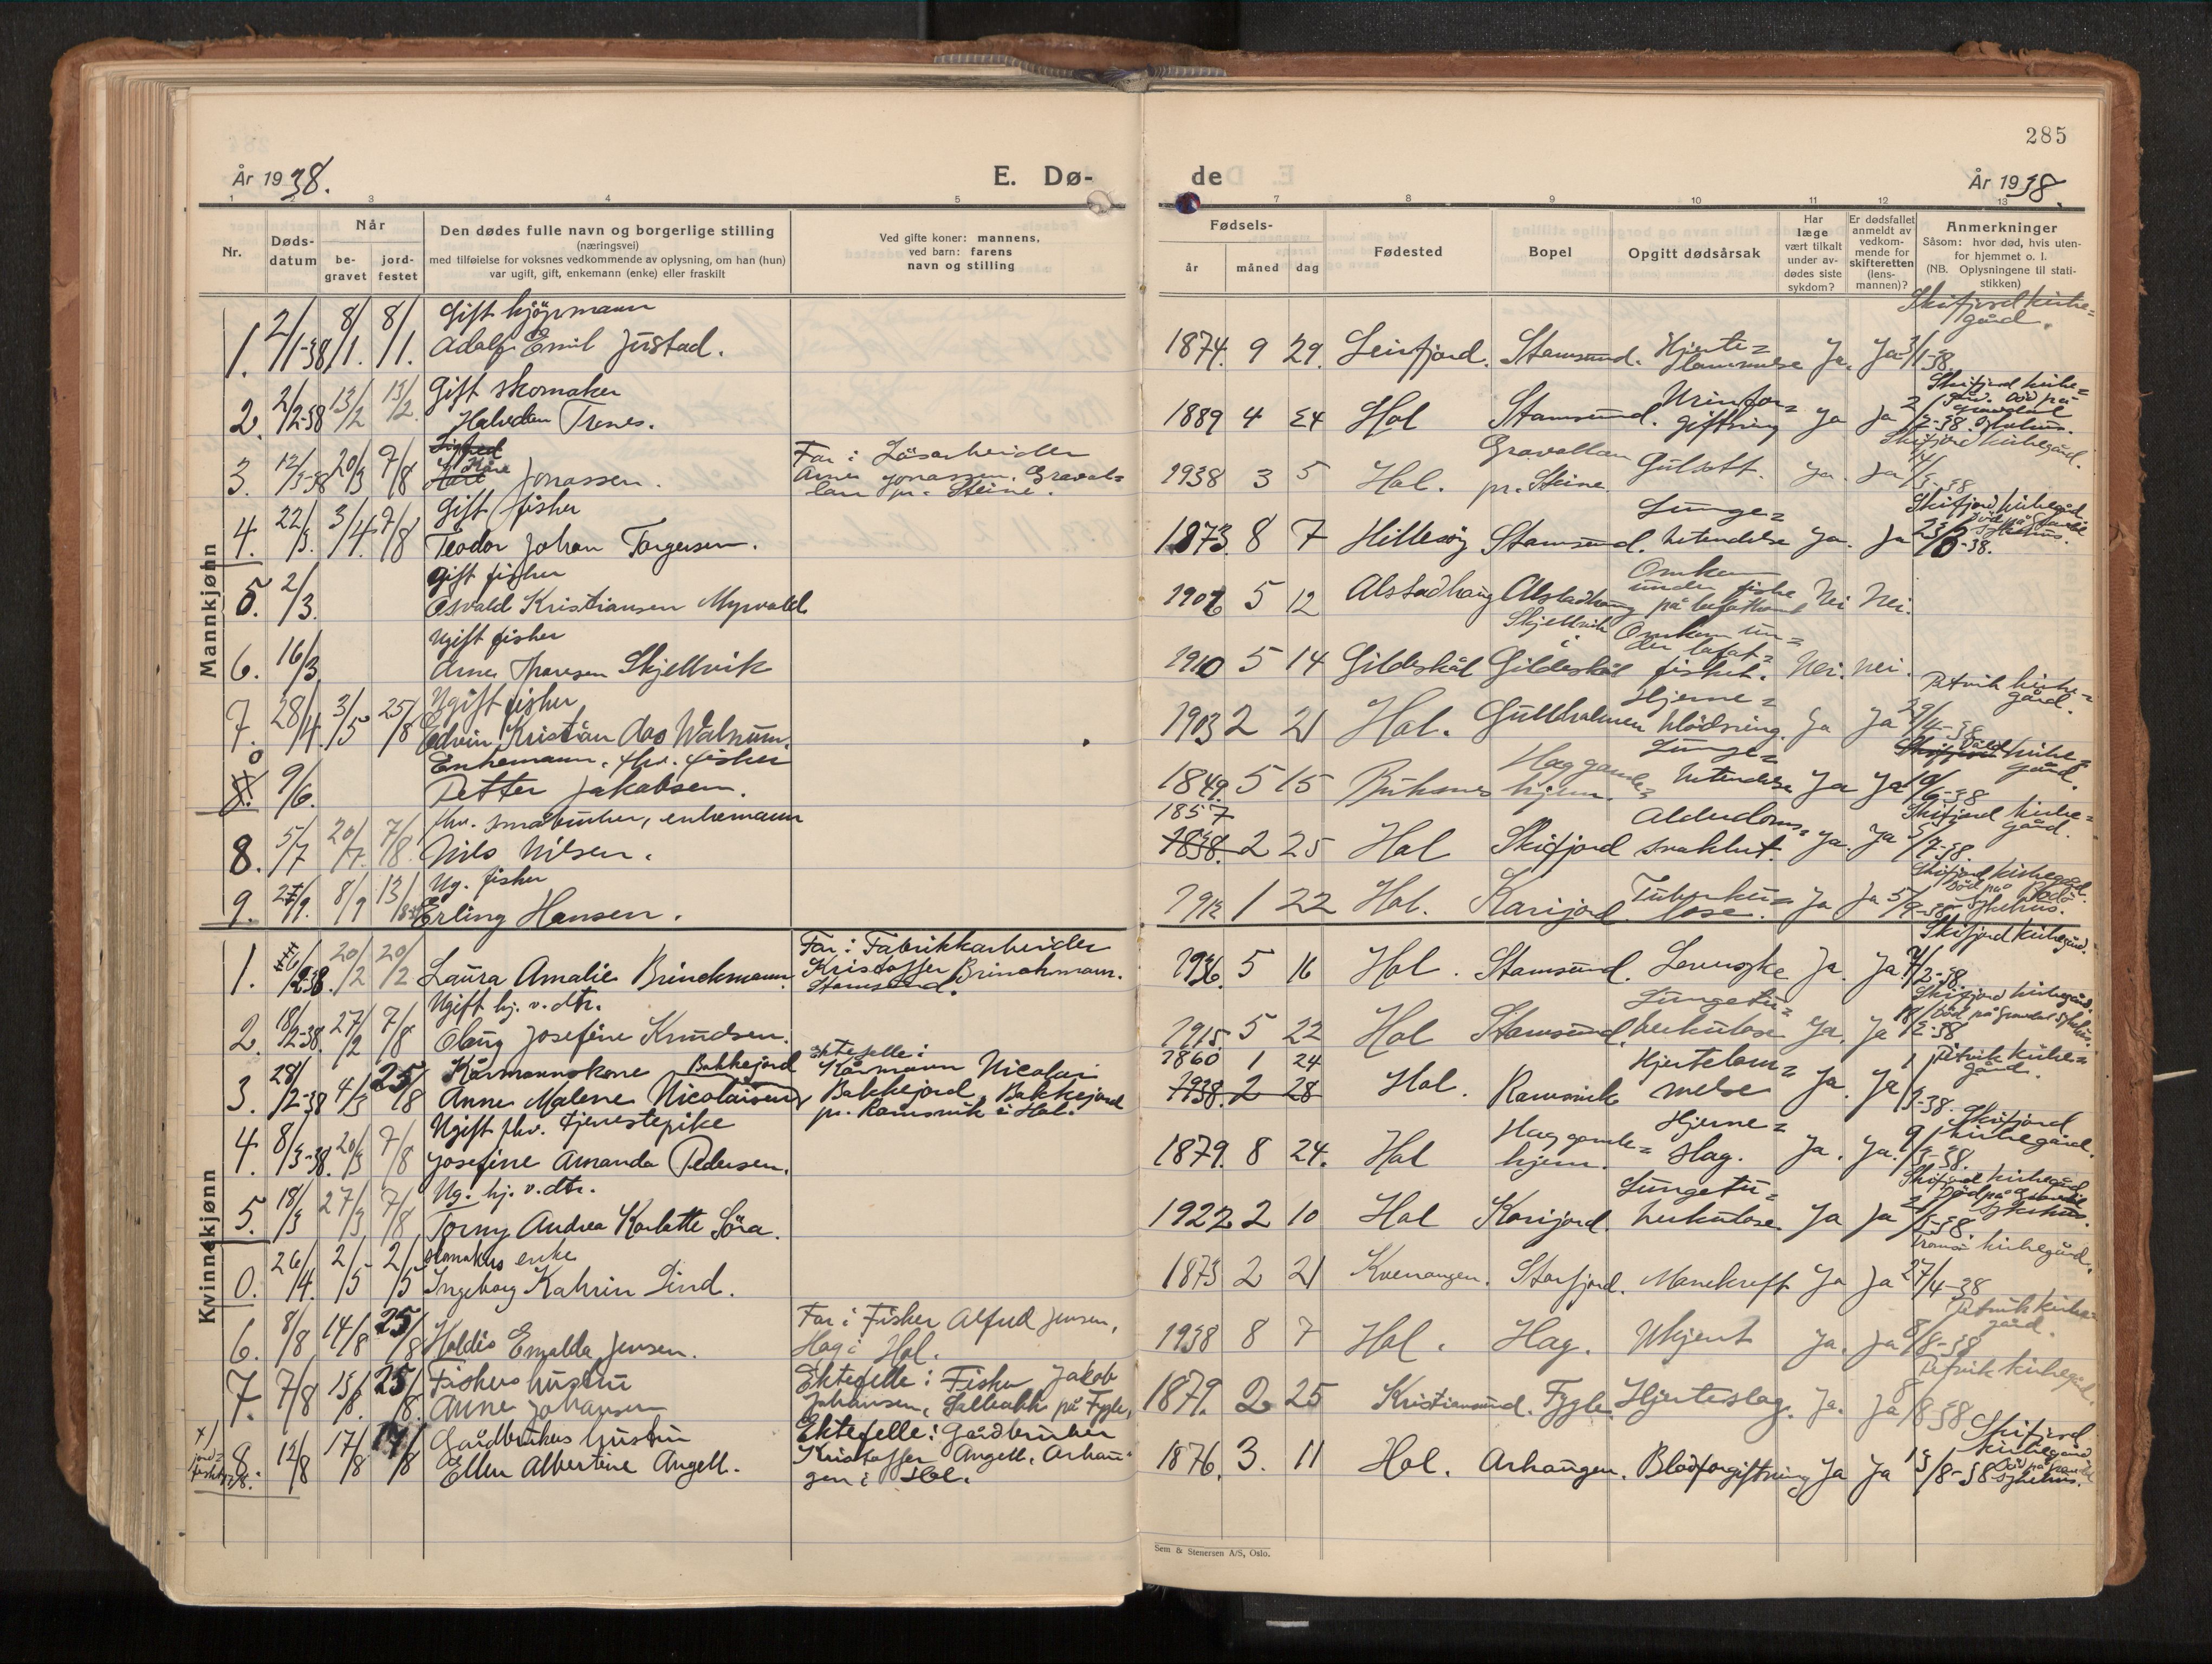 285
År 1938.
E. Dø-
de
År 1938.
1 2 3 4 5 7 8 9 10 11 12 13
Nr.
Døds-
datum
Når
be-
gravet
jord-
festet
Den dødes fulle navn og borgerlige stilling
(næringsvei)
med tilføielse for voksnes vedkommende av oplysning, om han (hun)
var ugift, gift, enkemann (enke) eller fraskilt
Ved gifte koner: mannens,
ved barn: farens
navn og stilling
Fødsels-
år måned dag
Fødested
Bopel
Opgitt dødsårsak
Har
læge
vært tilkalt
under av-
dødes siste
sykdom?
Er dødsfallet
anmeldt av
vedkom-
mende for
skifteretten
(lens-
mannen)?
Anmerkninger
Såsom: hvor død, hvis uten-
for hjemmet o. l.
(NB. Oplysningene til stati-
stikken)
Mannkjønn
Gift kjöpmann
Skifjord kirke=
gård.
1. 2/1-38 8/1. 8/1. Adolf Emil Justad. 1874. 9 29. Leirfjord. Stamsund. Hjerte=
lammelse Ja. Ja 3/1-38.
Gift skomaker
Skifjord kirke=
gård. Död på
Gravdal
2. 2/2-38 13/2 13/2 Halvdan Trenes. 1889 4 24 Hol Stamsund. Urinfor=
giftning Ja Ja 2/2-38. sykehus.
Skifjord kirkegård.
Far: Lösarbeider
3. 12/3-38 20/3 7/8 Kåre Jonassen. Arne Jonassen, Graval=
len pr. Steine. 1938 3 5 Hol. Gravollen
pr. Steine. Gulsott. Ja. Ja
Gift fisker
Skifjord kirkegård
4. 22/3. 3/4 7/8 Teodor Johan Torgersen. 1873 8 7 Hillesöy Stamsund. Lunge=
betendelse Ja. Ja
Gift fisker
5. 2/3. Osvald Kristiansen Myrvold. 5 12 Alstadhaug Alstadhaug Omkom
under fiske
på Nei Nei.
Ugift fisker
6. 16/3 Arne Thoresen Skjellvik 1910 5 14 Gildeskål Skjellvik
i
Gildeskål Omkom un=
der lofot=
fisket. Nei. Nei.
Ugift fisker
Petvik kirke=
gård.
7. 28/4. 3/5 25/8 Edvin Kristian Aas Walnum. 1903 2 21 Hol. Gullholmen Hjerne=
blödning. Ja Ja 29/4-38
Enkemann, fhv. fisker
0 9/6. Petter Jakobsen. 1849. 5 15 Buksnes Hag gamle=
hjem. Lunge=
betendelse Ja Ja 10/6-38
kirke=
gård.
fhv. småbruker, enkemann
1857
Skifjord kirke=
gård.
8. 5/7 20/7. 7/8. Nils Nilsen. 1838. 2 25 Hol Skifjord Alderdoms=
svakhet. Ja. Ja
Ug. fisker
Skifjord kirkegård.
Död på Bodö
sykehus.
9. 8/9 Erling Hansen. 1 22 Hol. Karijord. Tuberku=
lose. Ja Ja
Kvinnekjønn
Skifjord kirkegård.
1. 20/2 20/2 Laura Amalie Brinckmann. Far: Fabrikkarbeider
Kristoffer Brinckmann.
Stamsund. 1936. 5 16 Hol. Stamsund. Ja. Ja
Ugift hj. v. dtr.
Skifjord kirkegård.
Död på Gravdal sykehus.
2. 18/2-38. 27/2 7/8 Olaug Josefine Knudsen. 1915 5 22 Hol Stamsund. Lungetu=
berkulose Ja. Ja 18/2-38
1860 1 24
Petvik kirke=
gård.
Kårmannskone Bakkejord
3. 28/2-38 4/3 25/8 Anne Malene Nicolaisen Ektefelle:
Kårmann Nicolai
Bakkejord, Bakkejord
pr. Ramsvik i Hol. 1938. 2 28 Hol. Ramsvik Hjertelam=
melse Ja. Ja 1/3-38.
Ugift fhv. tjenestepike
Skifjord
kirkegård.
4. 8/3-38. 20/3 7/8 Josefine Amanda Pedersen. 1879. 8 24. Hol Hag gamle=
hjem. Hjerne=
slag. Ja. Ja. 9/3-38.
Ug. hj. v. dtr.
Skifjord kirkegård
Död på Gravdal
sykehus.
5. 18/3 27/3 7/8 Torny Andrea Karlotte Söra. 1922 2 10 Hol Karijord. Lungetu=
berkulose. Ja Ja
Skomakers enke
Tromsö kirkegård.
0. 26/4. 2/5 2/5 Ingeborg Katrin Lind. 1873 2 21 Kvenangen. Storfjord. Mavekreft Ja Ja 27/4-38
Petvik kirke=
gård.
6. 8/8 14/8 25/8 Haldis Esmalda Jensen. Far: Fisker Alfred Jensen,
Hag i Hol. 1938 8 7 Hol. Hag. Ukjent Ja. Ja 8/8-38
Petvik kirkegård.
7. 7/8 15/8. 25/8. Fiskers hustru
Anne Johansen Ektefelle: Fisker Jakob
Johansen, på Fygle, 1879. 2 25 Kristiansund. Fygle. Hjerteslag. Ja. Ja 8/8-38
Skifjord
kirkegård
Död på Gravdal
sykehus.
8. 12/8 17/8 17/8 Gårdbrukers hustru
Ellen Albertine Angell. Ektefelle: Gårdbruker
Kristoffer Angell, Arhau=
gen i Hol. 1876. 3. 11 Hol. Arhaugen. Blodforgiftning Ja Ja 13/8-38
Sem & Stenersen A/S, Oslo.